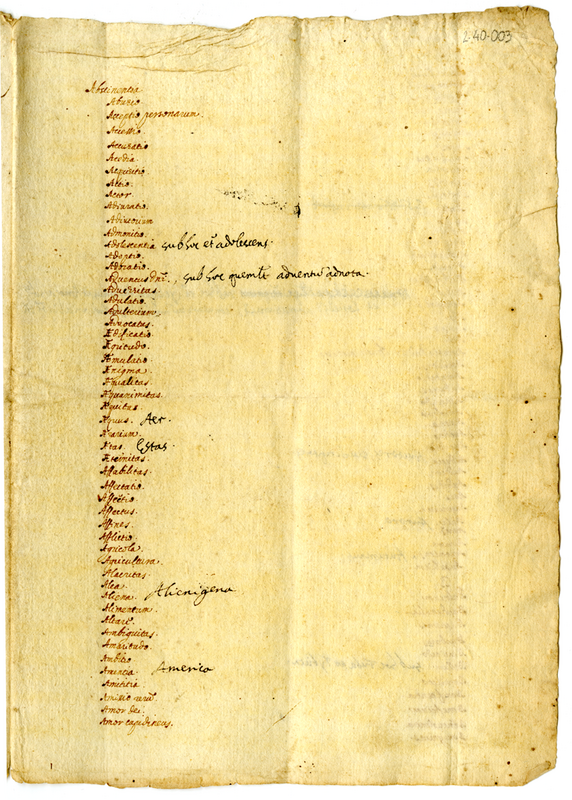 2-40-003
Abstinentia
Abusio
Acceptio personarum.
Accessio.
Accusatio
Acedia.
Acquisitio
Actio.
Actor
Adiuratio.
Adiutorium
Admonitio.
Adolescentia sub hoc et adolescens.
Adoptio.
Adoratio.
Aduentus dni., sub hoc aduentu adnota.
Aduersitas.
Adulatio.
Adulterium.
Aduocatus.
Ædificatio.
Ægritudo.
Æmulatio.
Ænigma.
Æqualitas.
Æquanimitas.
Æquitas.
Æquus. Aer.
Ærarium.
Ætas. Æstas.
Æternitas.
Affabilitas.
Affectatio.
Affectio.
Affectus.
Affines.
Afflictio.
Agricola.
Agricultura.
Alacritas.
Alea.
Aliena. Alienigena
Alimentum.
Altare.
Ambiguitas.
Amaritudo.
Ambitio.
Amentia. America
Amicitia
Amor dei.
Amor cupidineus.